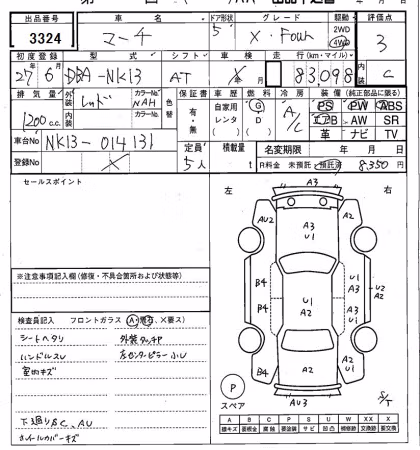 出品番号 車名 ドア形状 グレード 駆動 評価点
3324 マーチ 5 X・Four 2WD 4WD 3
初度登録 型式 シフト 車検 走行(km・マイル) 内装
27年6月 DBA-NK13 AT 年 月 83,098 C
排気量 外装 レッド カラーNo. NAH 色替 保証書 車歴 燃料 冷房 装備(純正部品に限る)
1200 c.c. 内装 カラーNo. 有・無 自家用 レンタ ( ) G D ( ) A/C PS PW ABS
エアB AW SR
革 ナビ TV
車台No NK13-014131 定員 5人 積載量 t 名変期限 年 月 日
登録No X R料金 未預託・預託済 8,350円
セールスポイント 左 右
A3
AU2 A3 U1 A2
B4 U1 A3 U2 A2
B4 U1 A2 A3 U1
B4 A2 A2 U1
AU3
P
スペア
S/T
※注意事項記入欄(修復・不具合箇所および状態等)
検査員記入 フロントガラス (A・飛石、X要ス)
シートヘタリ 外装タッチP
ハンドルスレ 左センターピラー小U
室内キズ
下廻りSC、AU
ホイールカバーキズ
A B C P S U W XX X
線キズ 要板金 腐蝕 要塗装 サビ 凹凸 補修跡 交換跡 要交換